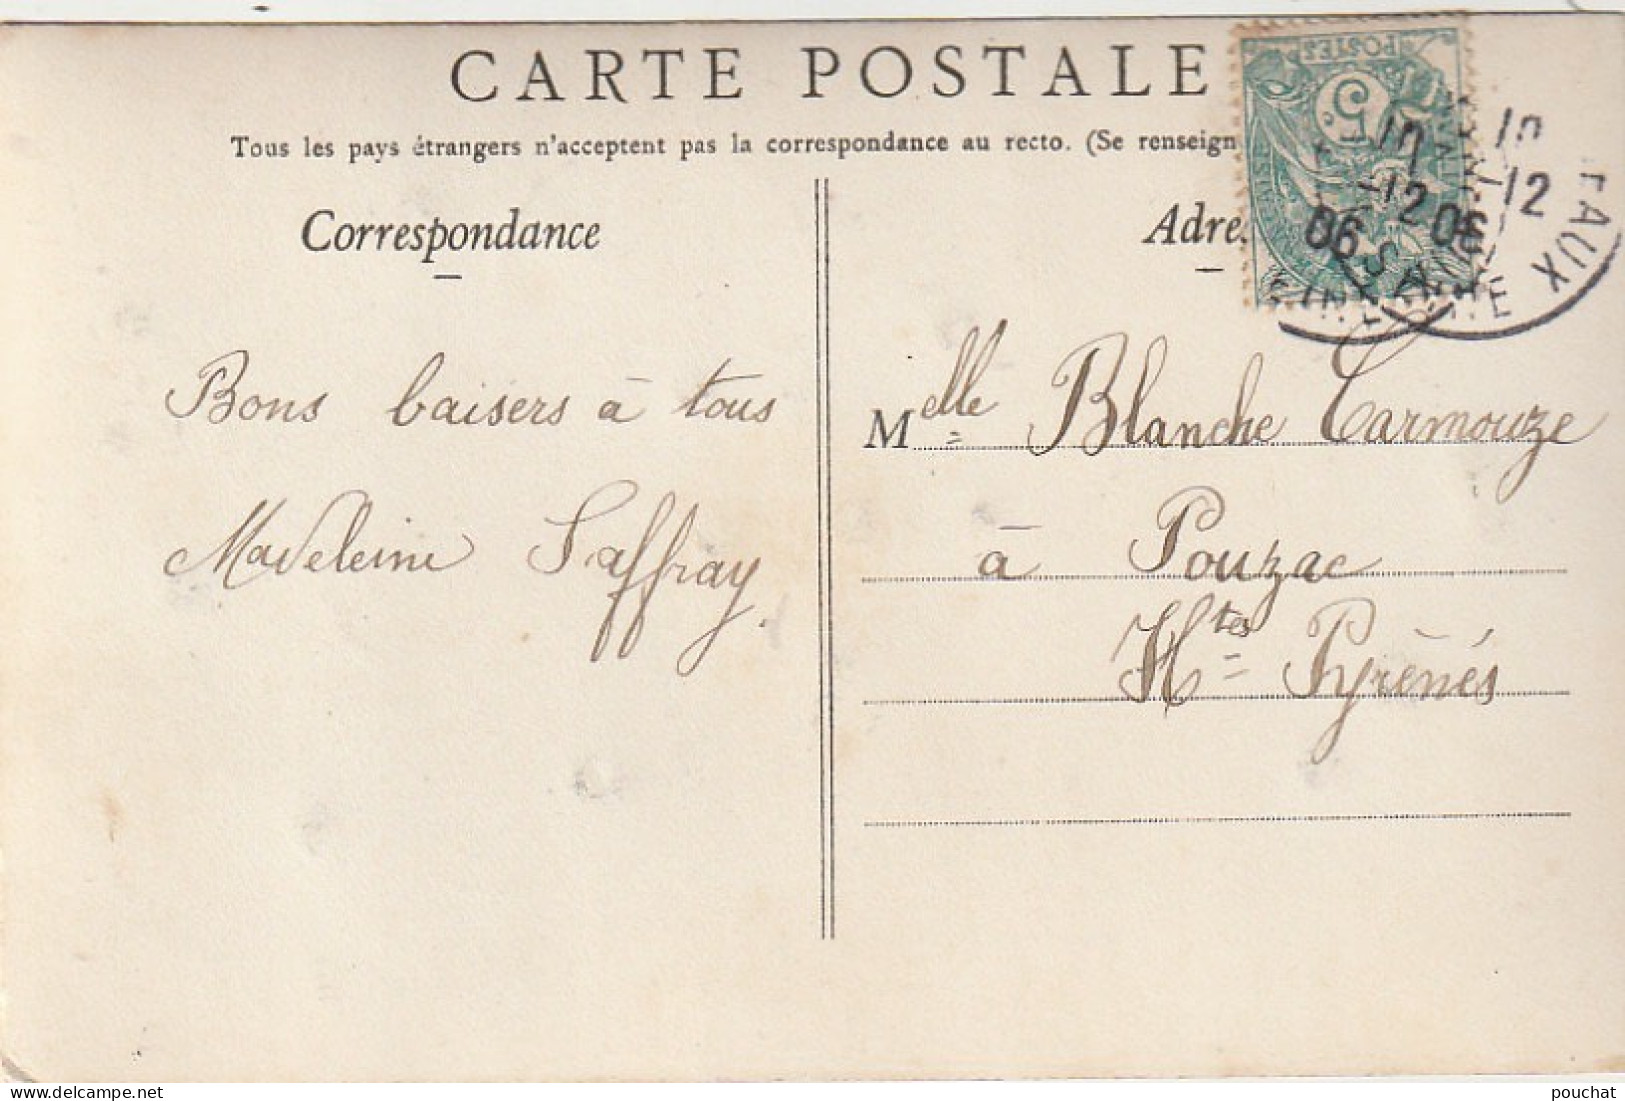 CARTE POSTALE
Tous les pays étrangers n'acceptent pas la correspondance au recto. (Se renseign
Correspondance
Adre
POSTES
5
10
10
12
12
06
06
SEINE
EAUX
Bons baisers à tous
Madeleine Saffray.
Melle Blanche Carmouze
à Pouzac
Htes Pyrénés
www.delcampe.net
pouchat